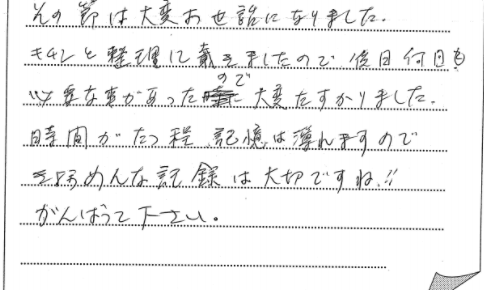 その節は大変お世話になりました.
キチンと整理して戴きましたので 後日何回も
必要な事があったので 大変たすかりました.
時間がたつ程、記憶は薄れますので
きちょうめんな記録は大切ですね!!
がんばって下さい。